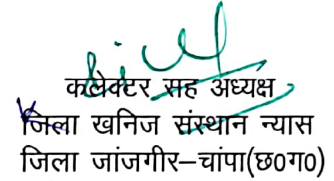 कलेक्टर सह अध्यक्ष
जिला खनिज संस्थान न्यास
जिला जांजगीर–चांपा(छ0ग0)